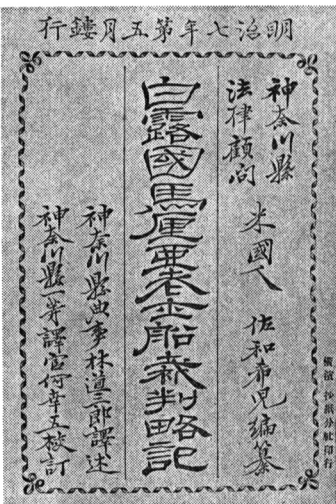 明治七年第五月鏤行
神奈川縣
法律顧問
米國人 佐和希児編纂
白露國馬厘亜老士船裁判略記
神奈川縣典事林道三郎譯述
神奈川縣一等譯官何幸五校訂